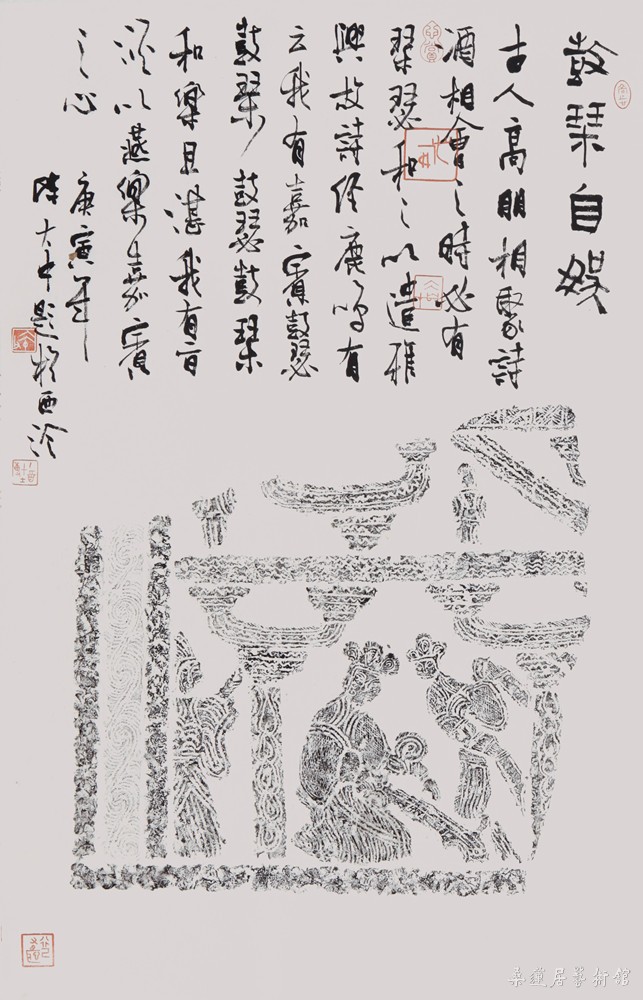 鼓琴自娱
古人高朋相聚詩
酒相會之時必有
琴瑟和之以遣雅
興故詩經鹿鳴有
云我有嘉賓鼓瑟
鼓琴鼓瑟鼓琴
和樂且湛我有旨
酒以燕樂嘉賓
之心
庚寅年
陳大中題於西泠
桑蓮居藝術館